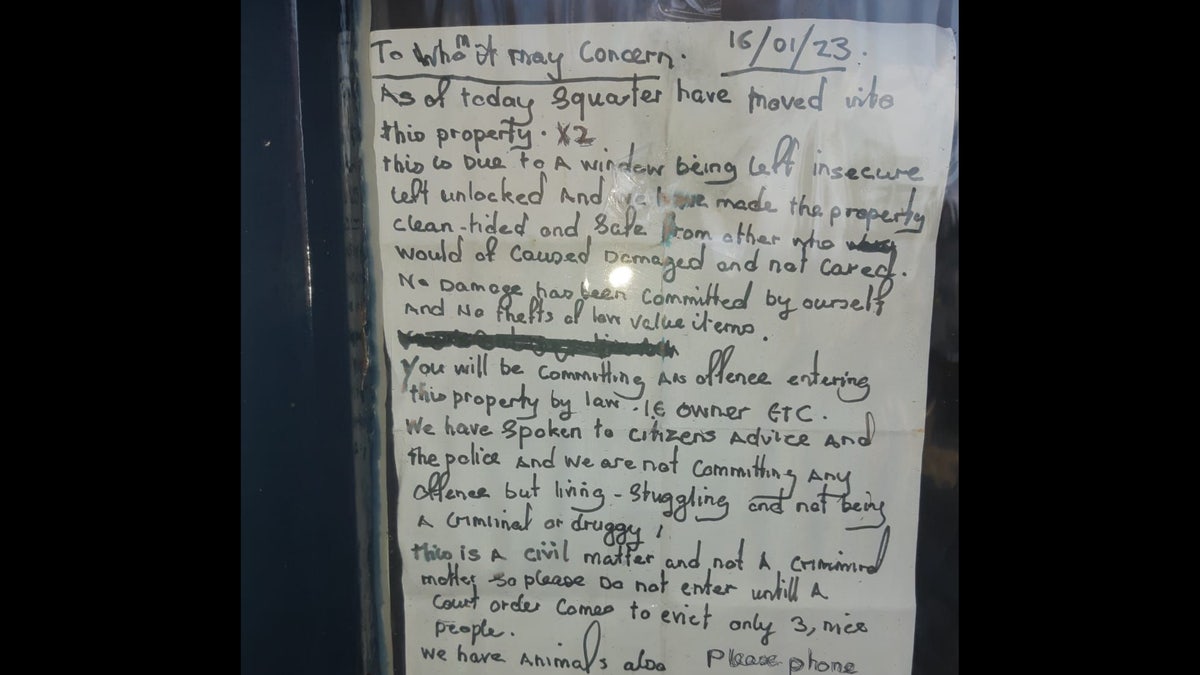 To Whom it may Concern. 16/01/23.
As of today Squarter have moved into
this property. X2
this is Due to A window being left insecure
left unlocked And we have made the property
clean-tided and Safe from other who
would of Caused Damaged and not Cared.
No Damage has been Committed by ourself
And No thefts of low value items.
You will be Committing Ans offence entering
this property by law. I.E owner ETC.
We have Spoken to citizens Advice And
the police And we are not Committing Any
offence but living - Stuggling and not being
A Criminal or druggy!
this is A civil matter and not A
matter so please Do not enter untill A
Court order Comes to evict only 3, nice
people.
We have Animals also Please phone